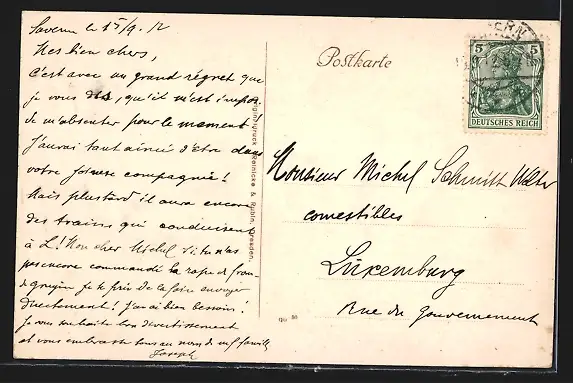 Saverne le 15/9. 12
Mes bien chers,
C'est avec un grand régret que
je vous dis, qu'il m'est impos.
de m'absenter pour le moment
J'aurai tant aimé d'être dans
votre joieuse compagnie!
Mais plus tard il aura encore
des trains qui conduisent
à L! Mon cher Michel si tu n'as
pas encore commandé la
je te prie de la faire envoyer
directement! J'en ai bien besoin!
Je vous souhaite bon divertissement
et vous embrasse tous au nom de
Joseph
Originaldruck Reinicke & Rubin, Dresden.
Postkarte
ERN
5 5
DEUTSCHES REICH
Monsieur Michel Schmitt
comestibles
Luxemburg
Rue du Gouvernement